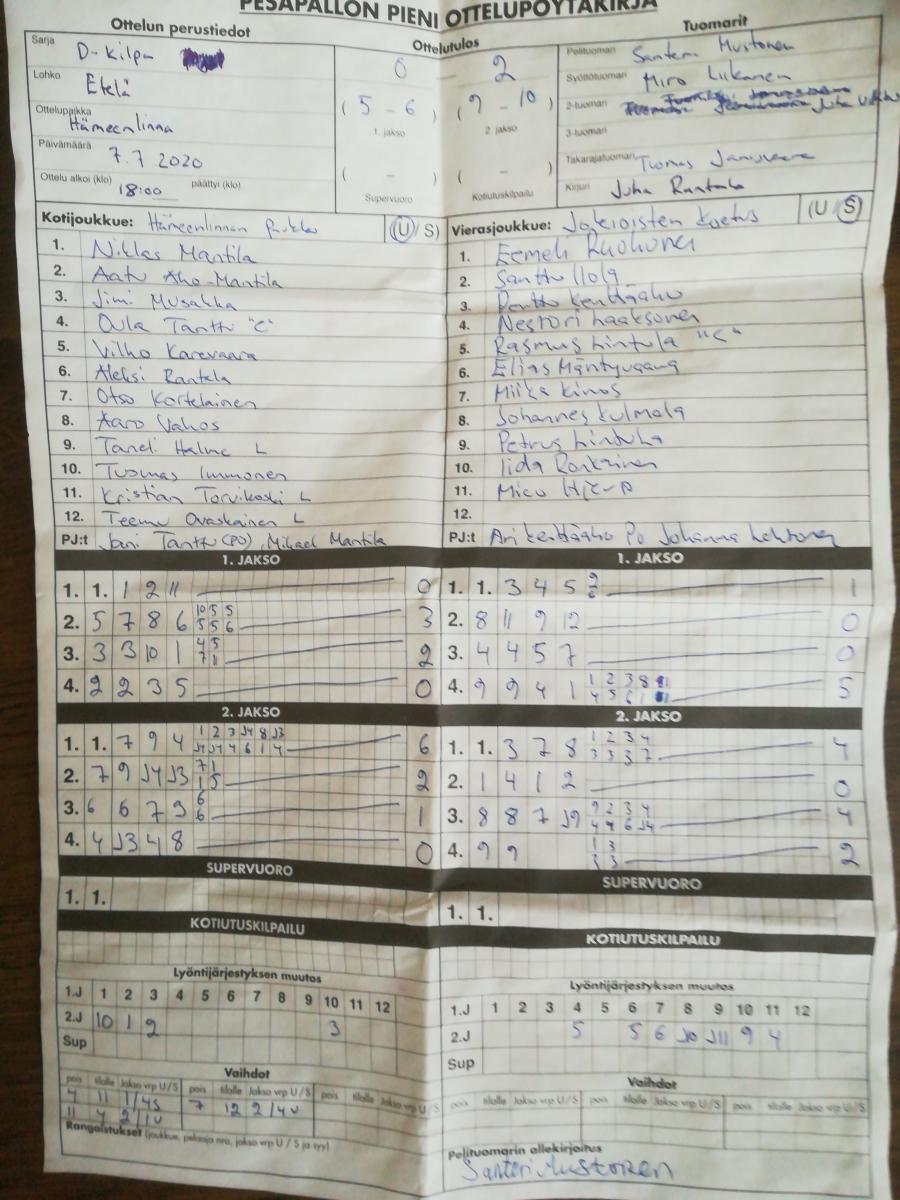 PESÄPALLON PIENI OTTELUPÖYTÄKIRJA
Ottelun perustiedot
Ottelutulos
Tuomarit
Sarja D-kilpa
Lohko Etelä
Ottelupaikka Hämeenlinna
Päivämäärä 7.7 2020
Ottelu alkoi (klo) 18:00 päättyi (klo)
0 2
( 5 - 6 ) ( 9 - 10 )
1. jakso 2. jakso
( - ) ( - )
Supervuoro Kotiutuskilpailu
Pelituomari Santeri Mustonen
Syöttötuomari Miro Liikanen
2-tuomari Juha
3-tuomari
Takarajatuomari Tuomas
Kirjuri Juha Rantala
Kotijoukkue: Hämeenlinnan (U / S)
1. Niklas Mantila
2. Aatu Aho-Mantila
3. Jimi Musakka
4. Oula Tanttu "C"
5. Vilho Karevaara
6. Aleksi Rantala
7. Otso Kortelainen
8. Aaro Vahos
9. Taneli Halme L
10. Tuomas Immonen
11. Kristian Torvikoski L
12. Teemu Ovaskainen L
PJ:t Jani Tanttu (PO), Mikael Mantila
Vierasjoukkue: Jokioisten Koetus (U / S)
1. Eemeli Ruohonen
2. Santtu Ilola
3. Penttu Kenttäaho
4. Nestori Laaksonen
5. Rasmus Hintula "C"
6. Elias Mäntyvaara
7. Miika Kinos
8. Johannes Kulmala
9. Petrus Hintula
10. Iida Ronkainen
11. Mico
12.
PJ:t Ari Kenttäaho Po Johanna Lehtonen
1. JAKSO
1. 1. 1 2 11 0
2. 5 7 8 6 10 5 5 3
5 5 6
3. 3 3 10 1 4 5 2
7 11
4. 2 2 3 5 0
2. JAKSO
1. 1. 7 9 4 1 2 3 J4 8 J3 6
J4 J4 4 6 1 4
2. 7 9 J4 J3 7 1 2
1 5
3. 6 6 7 9 6 1
6
4. 4 J3 4 8 0
SUPERVUORO
1. 1.
KOTIUTUSKILPAILU
1. JAKSO
1. 1. 3 4 5 2 1
6
2. 8 11 9 12 0
3. 4 4 5 7 0
4. 9 9 4 1 1 2 3 8 5
4 5 6 1
2. JAKSO
1. 1. 3 7 8 1 2 3 4 4
3 3 3 7
2. 1 4 1 2 0
3. 8 8 7 J9 2 3 4 4
4 4 6 J4
4. 9 9 1 3 2
3 3
SUPERVUORO
1. 1.
KOTIUTUSKILPAILU
Lyöntijärjestyksen muutos
1.J 1 2 3 4 5 6 7 8 9 10 11 12
2.J 10 1 2 3
Sup
Vaihdot
pois tilalle Jakso vrp U/S pois tilalle Jakso vrp U/S pois tilalle Jakso vrp U/S
4 11 1/4S 7 12 2/4U
11 4 2/1U
Rangaistukset (joukkue, pelaaja nro, jakso vrp U / S ja syy)
Lyöntijärjestyksen muutos
1.J 1 2 3 4 5 6 7 8 9 10 11 12
2.J 5 5 6 J10 J11 9 4
Sup
Vaihdot
pois tilalle Jakso vrp U/S pois tilalle Jakso vrp U/S pois tilalle Jakso vrp U/S
Pelituomarin allekirjoitus
Santeri Mustonen